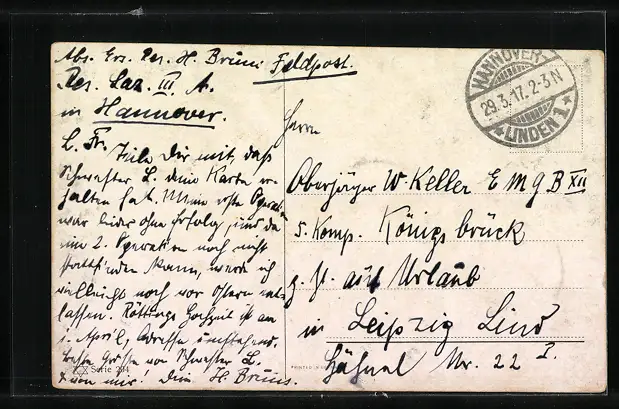 Abs. Ers. Res. H. Bruns Feldpost.
Res. Laz. III A.
in Hannover.
L. Fr. Teile Dir mit, daß
Schwester L. deine Karte er-
halten hat. Meine erste Operation
war leider ohne Erfolg, und da
eine 2. Operation noch nicht
stattfinden kann, werde ich
vielleicht noch vor Ostern ent-
lassen. Hochzeit ist am
1. April, Adresse umstehend.
Beste Grüße von Schwester L.
& von mir! Dein H. Bruns.
Serie 204
HANNOVER
29.3.17. 2-3N
* LINDEN 1 *
Herrn
Oberjäger W. Keller E M G B XII
5. Komp. Königsbrück
z. Zt. auf Urlaub
in Leipzig Lind
Nr. 22 I.